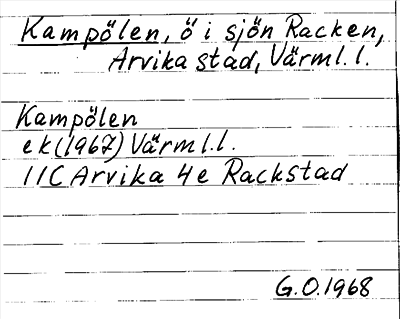 Kampölen, ö i sjön Racken,
Arvika stad, Värml. l.
Kampölen
ek (1967) Värml. l.
11C Arvika 4e Rackstad
G.O. 1968